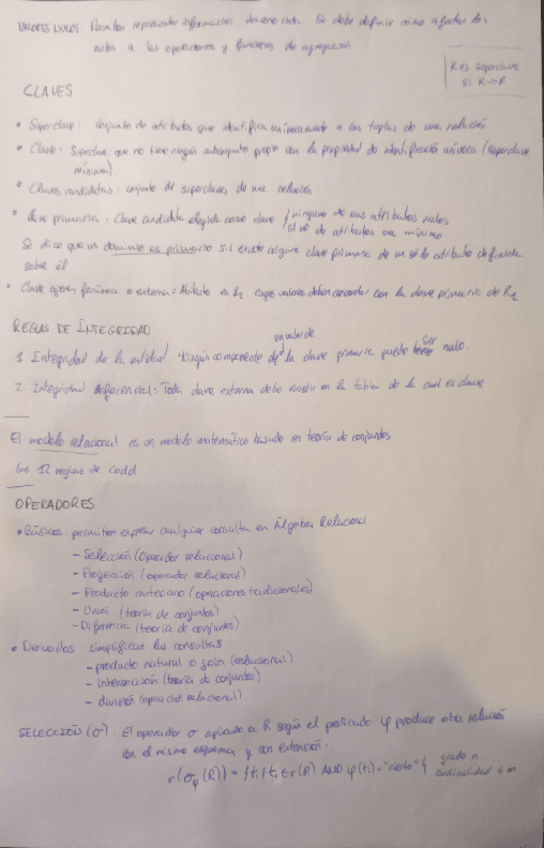 VALORES NULOS Permiten representar información desconocida. Se debe definir cómo afectan los
nulos a las operaciones y funciones de agregación
K es superclave
si K → R
CLAVES
• Superclave: conjunto de atributos que identifica unívocamente a las tuplas de una relación
• Clave: Superclave que no tiene ningún subconjunto propio con la propiedad de identificación unívoca (superclave
mínima).
• Claves candidatas: conjunto de superclaves de una relación
• Clave primaria: Clave candidata elegida como clave / ninguno de sus atributos nulos
el nº de atributos sea mínimo
Se dice que un dominio es primario si existe alguna clave primaria de un sólo atributo definida
sobre él
• Clave ajena foránea o externa: Atributo en R2 cuyos valores deben concordar con la clave primaria de R1
REGLAS DE INTEGRIDAD
1. Integridad de la entidad: Ningún componente de un valor de la clave primaria puede ser nulo.
2. Integridad referencial: Toda clave externa debe existir en la tabla de la cual es clave
El modelo relacional es un modelo matemático basado en teoría de conjuntos
Las 12 reglas de Codd
OPERADORES
• Básicos: permiten expresar cualquier consulta en Álgebra Relacional
- Selección (operador relacional)
- Proyección (operador relacional)
- Producto cartesiano (operaciones tradicionales)
- Unión (teoría de conjuntos)
- Diferencia (teoría de conjuntos)
• Derivados: simplifican las consultas
- producto natural o join (relacional)
- intersección (teoría de conjuntos)
- división (operación relacional)
SELECCIÓN (σ): El operador σ aplicado a R según el predicado φ produce otra relación
con el mismo esquema y con extensión:
r(σφ(R)) = {ti / ti ∈ r(R) AND φ(ti) = "cierto"} grado n
cardinalidad ≤ m